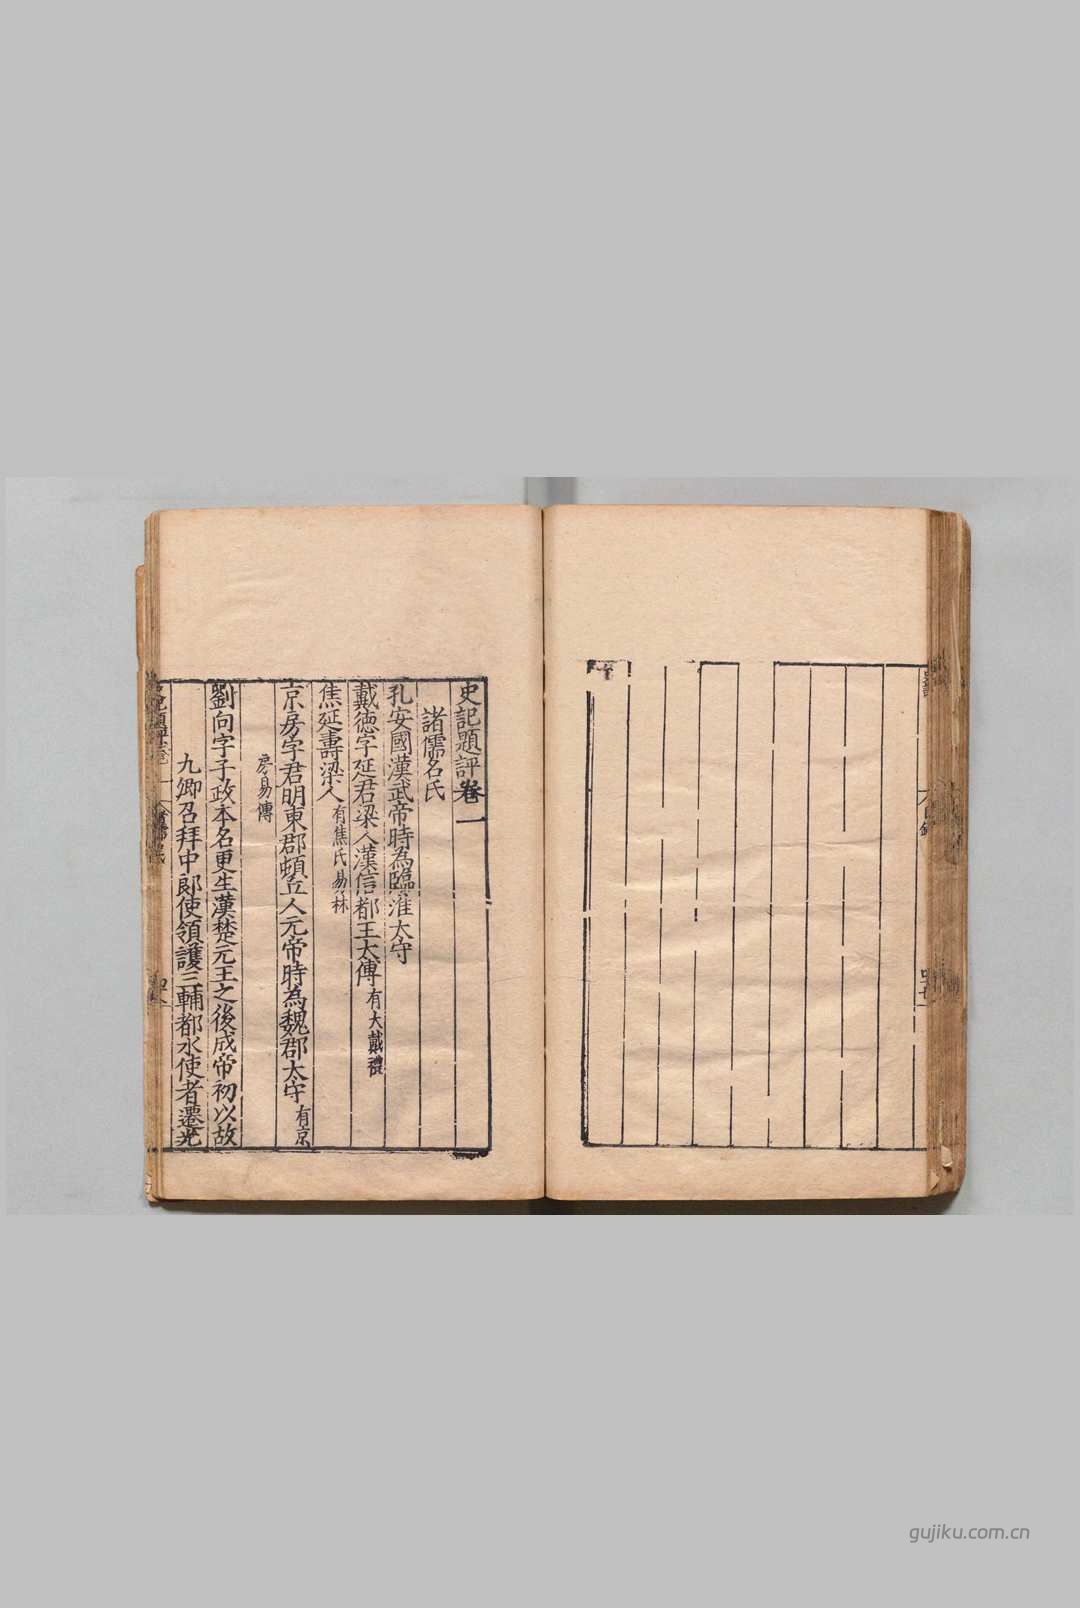 史記題評卷一
諸儒名氏
孔安國漢武帝時為臨淮太守
戴德字延君梁人漢信都王太傅有大戴禮
焦延壽梁人有焦氏易林
京房字君明東郡頓丘人元帝時為魏郡太守有京
房易傳
劉向字子政本名更生漢楚元王之後成帝初以故
九卿召拜中郎使領護三輔都水使者遷光
gujiku.com.cn